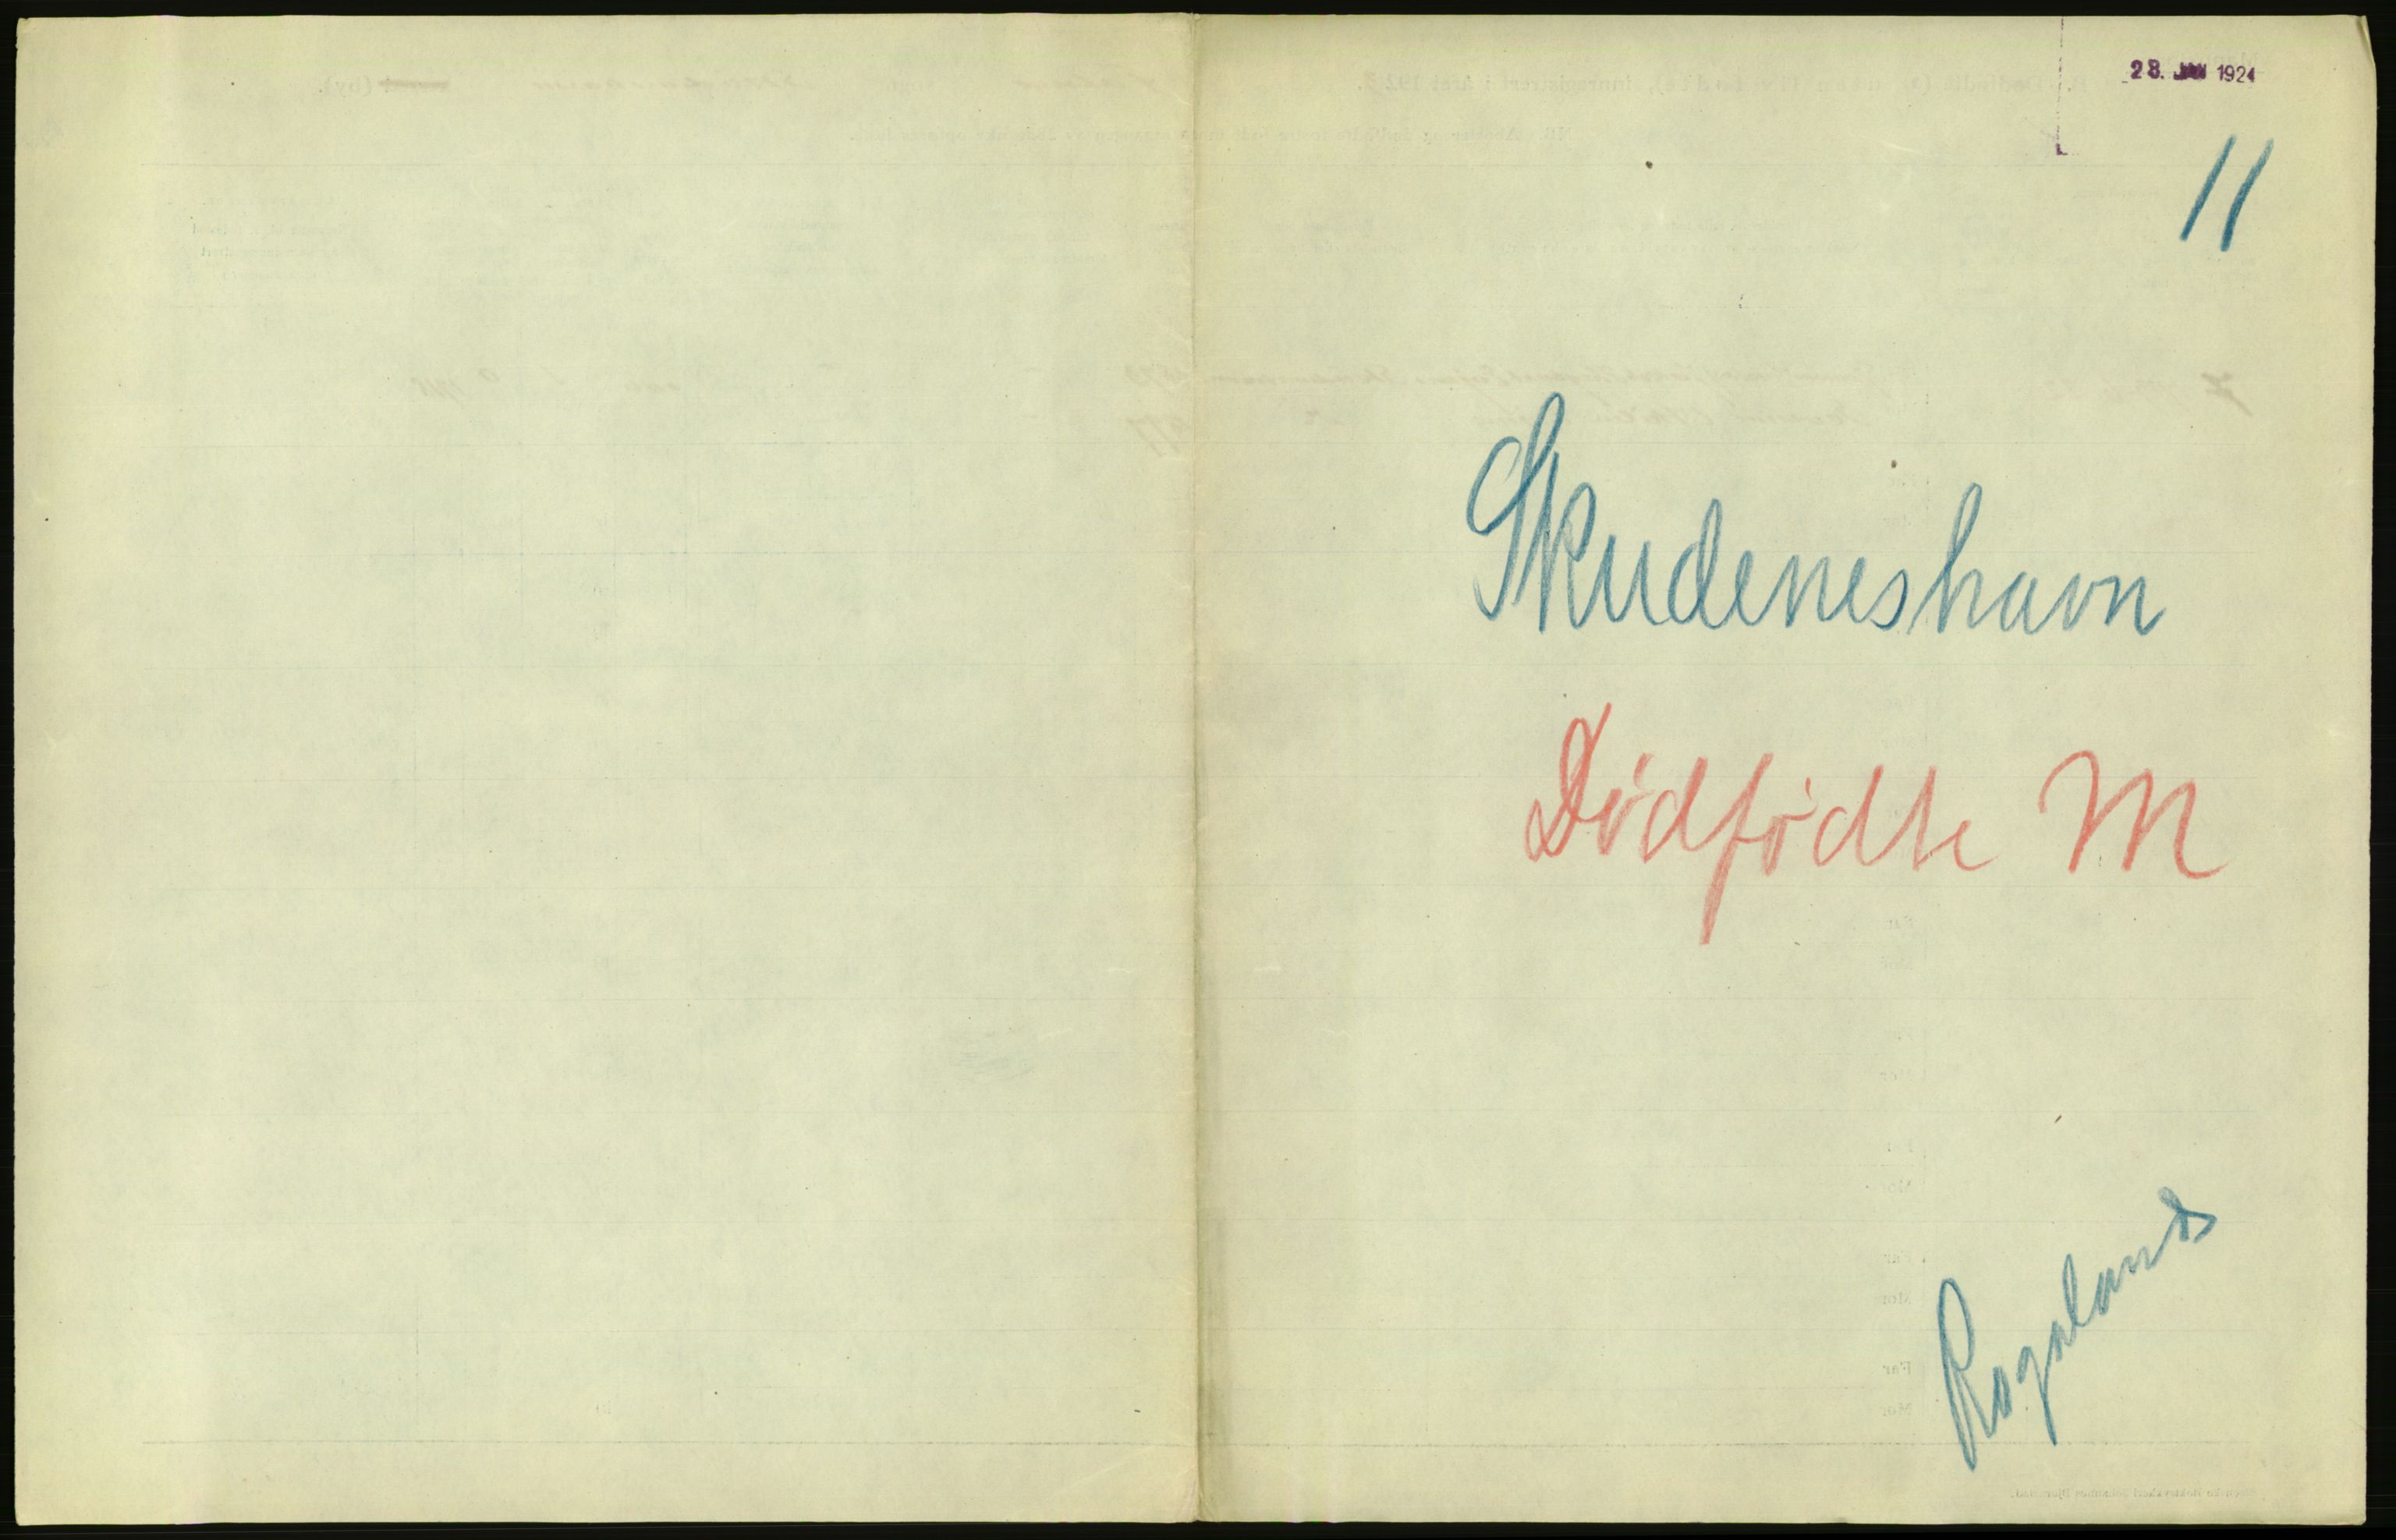 28. JAN 1924
11
Skudeneshavn
Dødfødte M
Rogalands